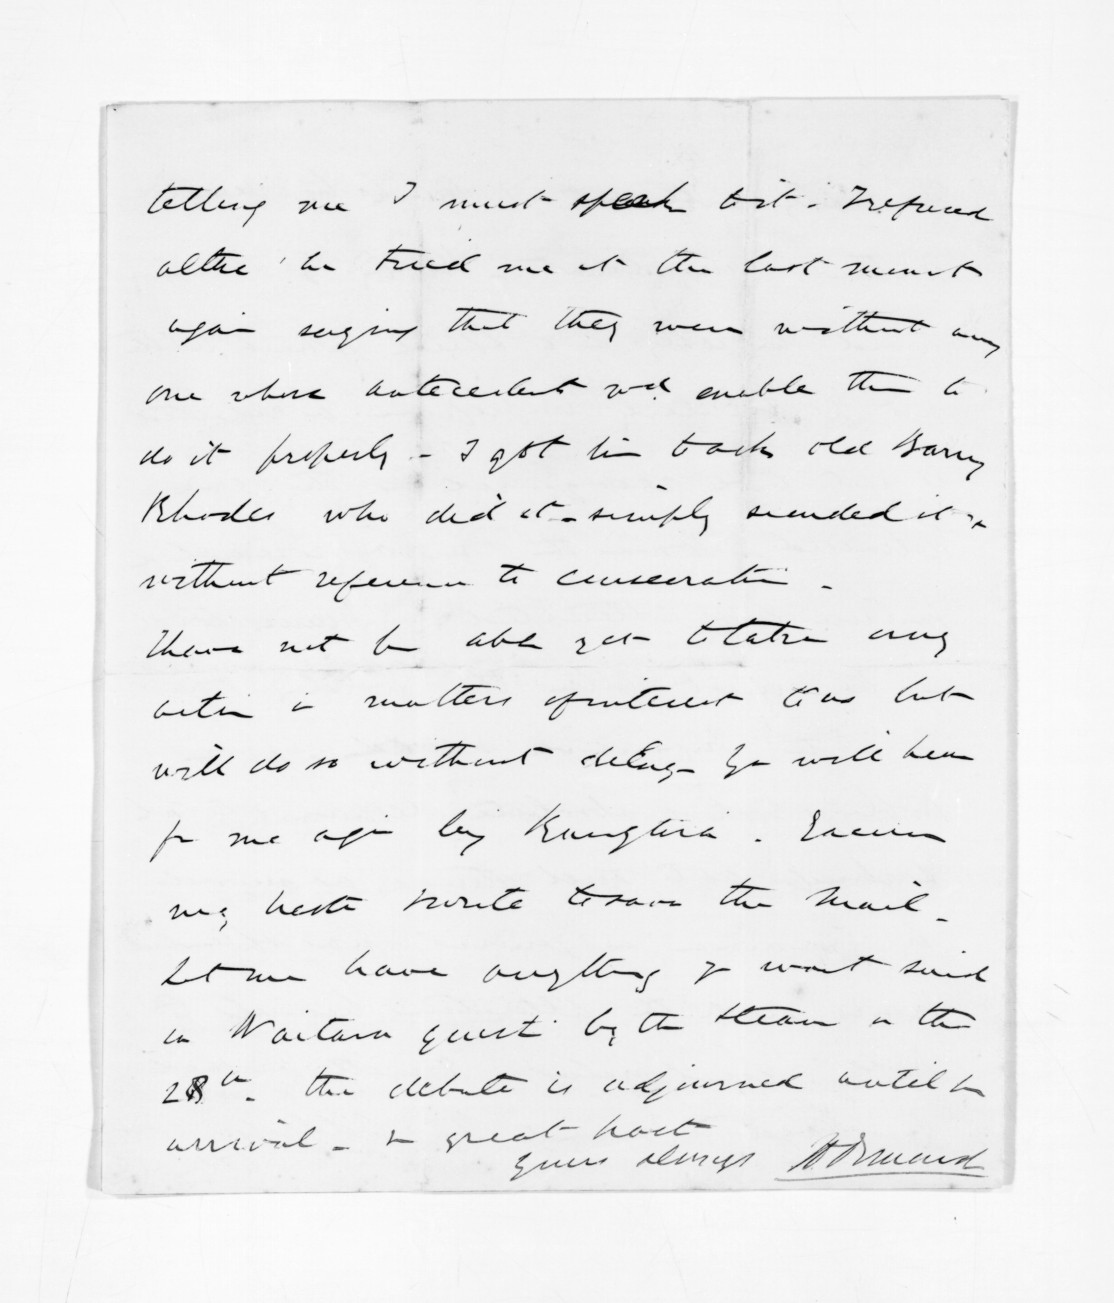 telling me I must speak to it. I refused
altho' he tried me at the last moment
again saying that they were without any
one whose antecedent wd. enable them to
do it properly - I got him to ask old Barney
Rhodes who did it - simply seconded it
without reference to consecration -
I have not be able yet to take any
action in matters of interest to us but
will do so without delay - Yr will hear
fr me again by Rangatira. Excuse
my haste I write to save the Mail -
Let me have anything yr want said
on Waitara quest by the steamer on the
28th. The debate is adjourned until its
arrival - In great haste
Yours always HOrmond